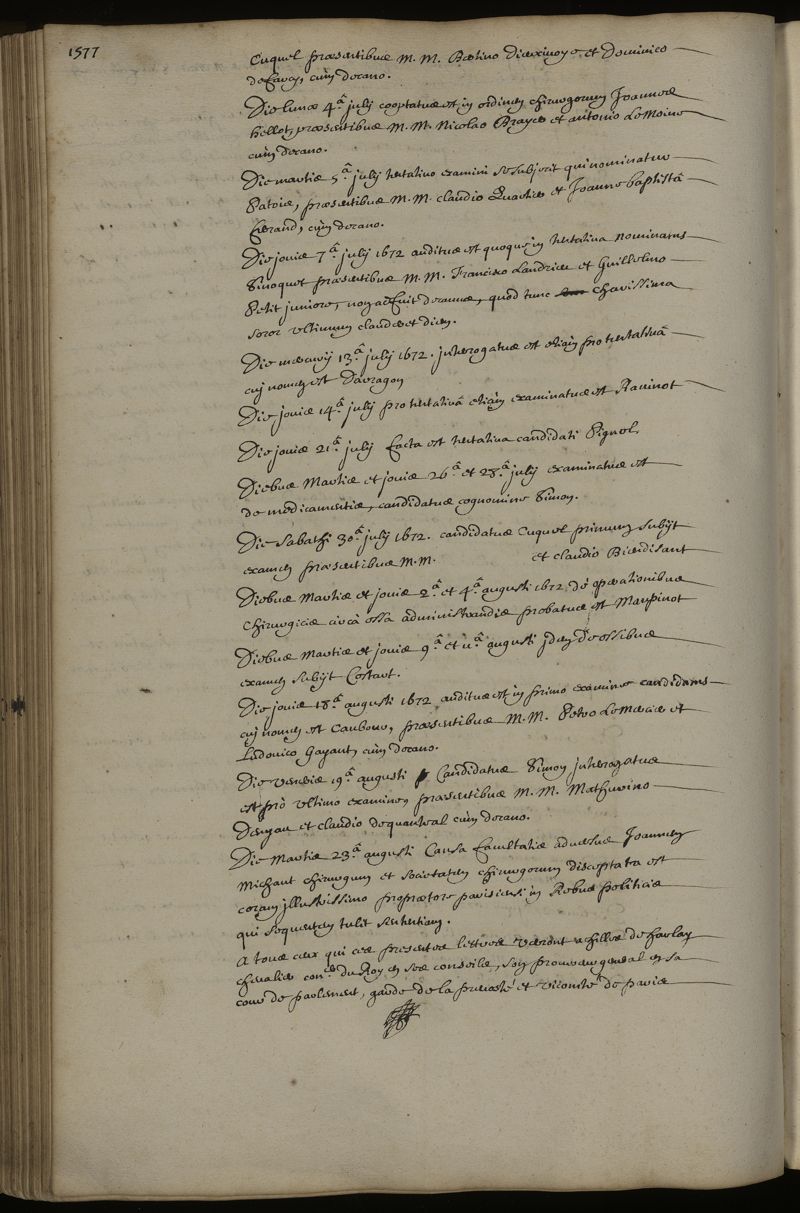 1577
Cuquel præsentibus M. M. Bertino Dieuxivoye et Dominico
de Farcy, cum decano.
Die lunæ 4.ª julij cooptatus est in ordinem chirurgorum Joannes
Hellot, præsentibus M. M. Nicolao Brayer et antonio LeMoine
cum decano.
Die martis 5.ª julij tentativo examini se subjecit qui nominatur
Patois, præsentibus M. M. claudio Quartier et Joanne baptistâ
Ferrand, cum decano.
Die jovis 7.ª julij 1672 auditus est quoque in tentativa nominatus
Sinoquet præsentibus M. M. Francisco Landrieu et Guillelmo
Petit juniore, non adfuit decanus, quod tunc charissima
soror ultimum clauderet diem.
Die mercurij 13.ª julij 1672. interrogatus est etiam pro tentativâ
cui nomen est Daragon
Die jovis 14.ª julij pro tentativâ etiam examinatus est Ravinot
Die jovis 21.ª julij facta est tentativa candidati Pignol.
Diebus Martis et jovis 26.ª et 28.ª julij examinatus est
de medicamentis, candidatus cognomine Simon.
Die Sabathi 30.ª julij 1672. candidatus Cuquel primum subijt
examen præsentibus M. M. et claudio Biendisant
Diebus Martis et jovis 2.ª et 4.ª augusti 1672 de operationibus
Chirurgicis circà ossa administrandis probatus est Maupinot
Diebus Martis et jovis 9.ª et 11.ª augusti idem de ossibus
examen subijt Costart.
Die jovis 18.ª augusti 1672 auditus est in primo examine candidatus
cui nomen est Cambour, præsentibus M. M. Petro LeMercier et
Ludovico Gayant, cum decano.
Die veneris 19.ª augusti Candidatus Simon interrogatus
est pro ultimo examine, præsentibus M. M. Mathurino
Denyau et claudio de quanteal cum decano.
Die Martis 23.ª augusti Causa Facultatis adversus Joannem
Michaut chirurgum et Societatem chirurgorum disceptata est
coram illustrissimo proprætore parisiensi in Rebus politicis
qui sequentem tulit sententiam.
A tous ceux qui ces presentes lettres verront achilles de harlay
chevalier con.er du Roy en ses conseils, son procureur general en sa
cour de parlement, garde de la prevosté et vicomté de paris